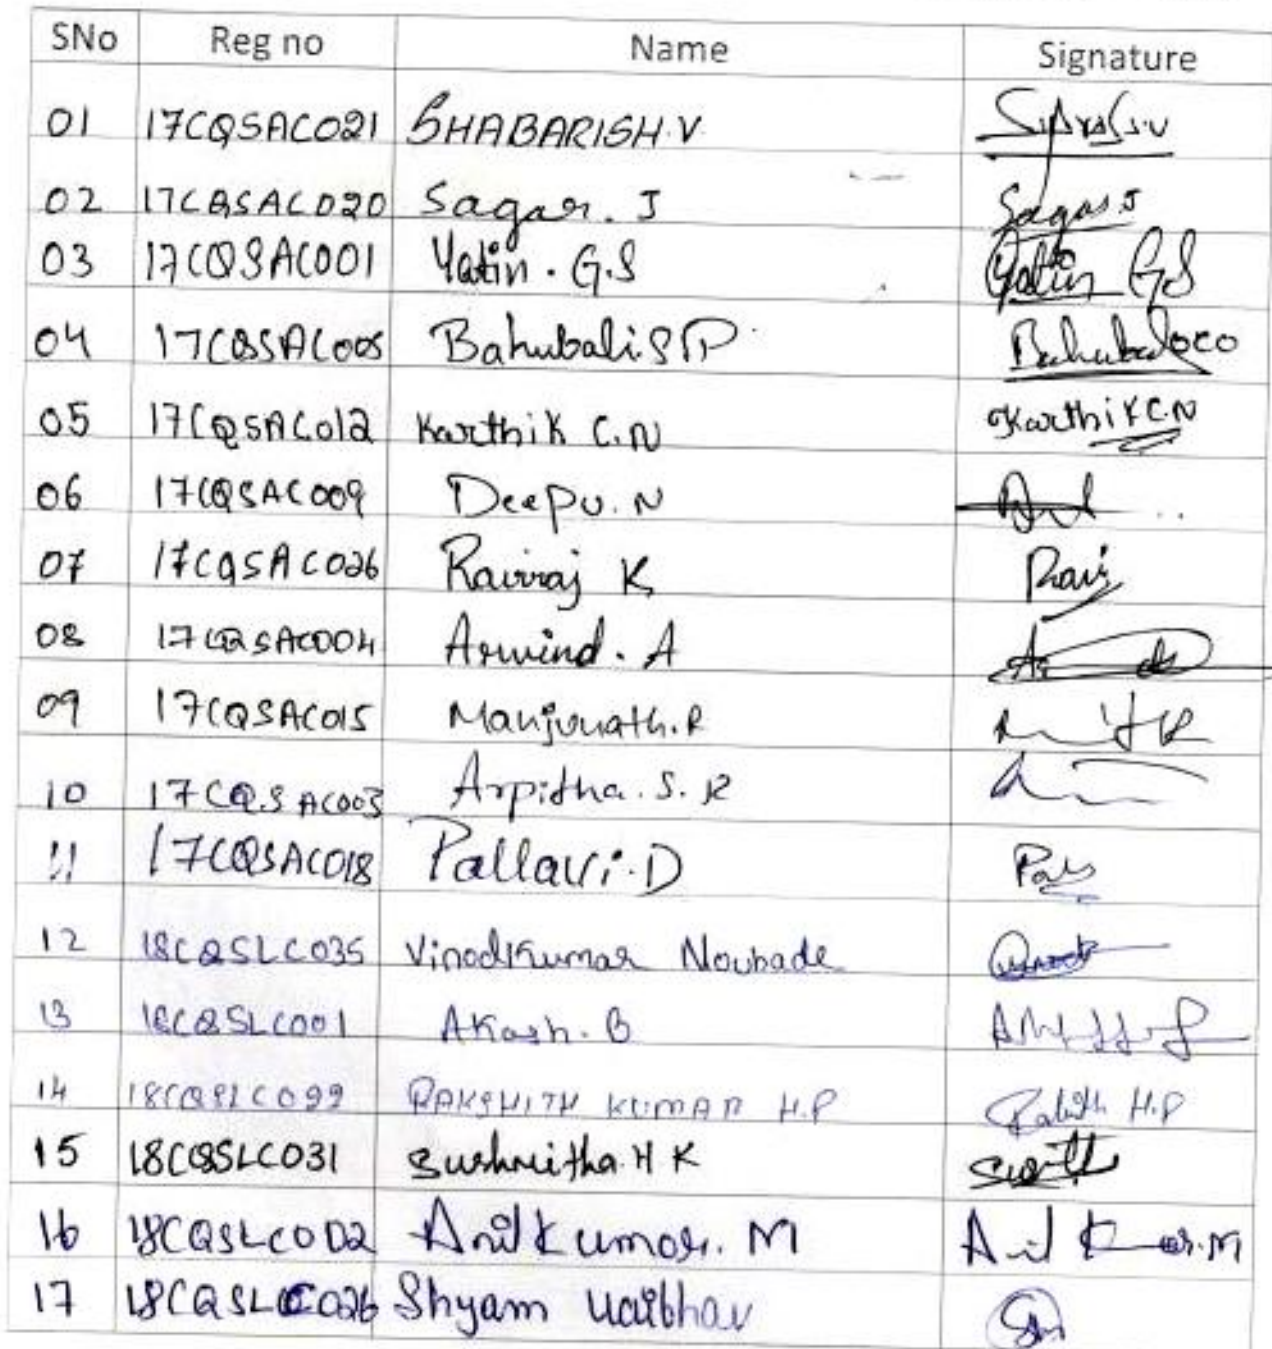 SNo Reg no Name Signature
01 17CQSAC021 SHABARISH.V
02 17CQSAC020 Sagar. J Sagar J
03 17CQSAC001 Yatin. G.S Yatin GS
04 17CQSAC005 Bahubali S P
05 17CQSAC012 Karthik C.N Karthik C.N
06 17CQSAC009 Deepu. N
07 17CQSAC026 Raviraj K Ravi
08 17CQSAC004 Arwind. A
09 17CQSAC015 Manjunath.R
10 17CQSAC003 Arpitha. S. R
11 17CQSAC018 Pallavi.D
12 18CQSLC035 Vinodkumar Noubade
13 18CQSLC001 Akash. B
14 RAKSHITH KUMAR H.P H.P
15 18CQSLC031 Sushmitha H K
16 18CQSLC002 Anil Kumar. M
17 18CQSLC026 Shyam Vaibhav